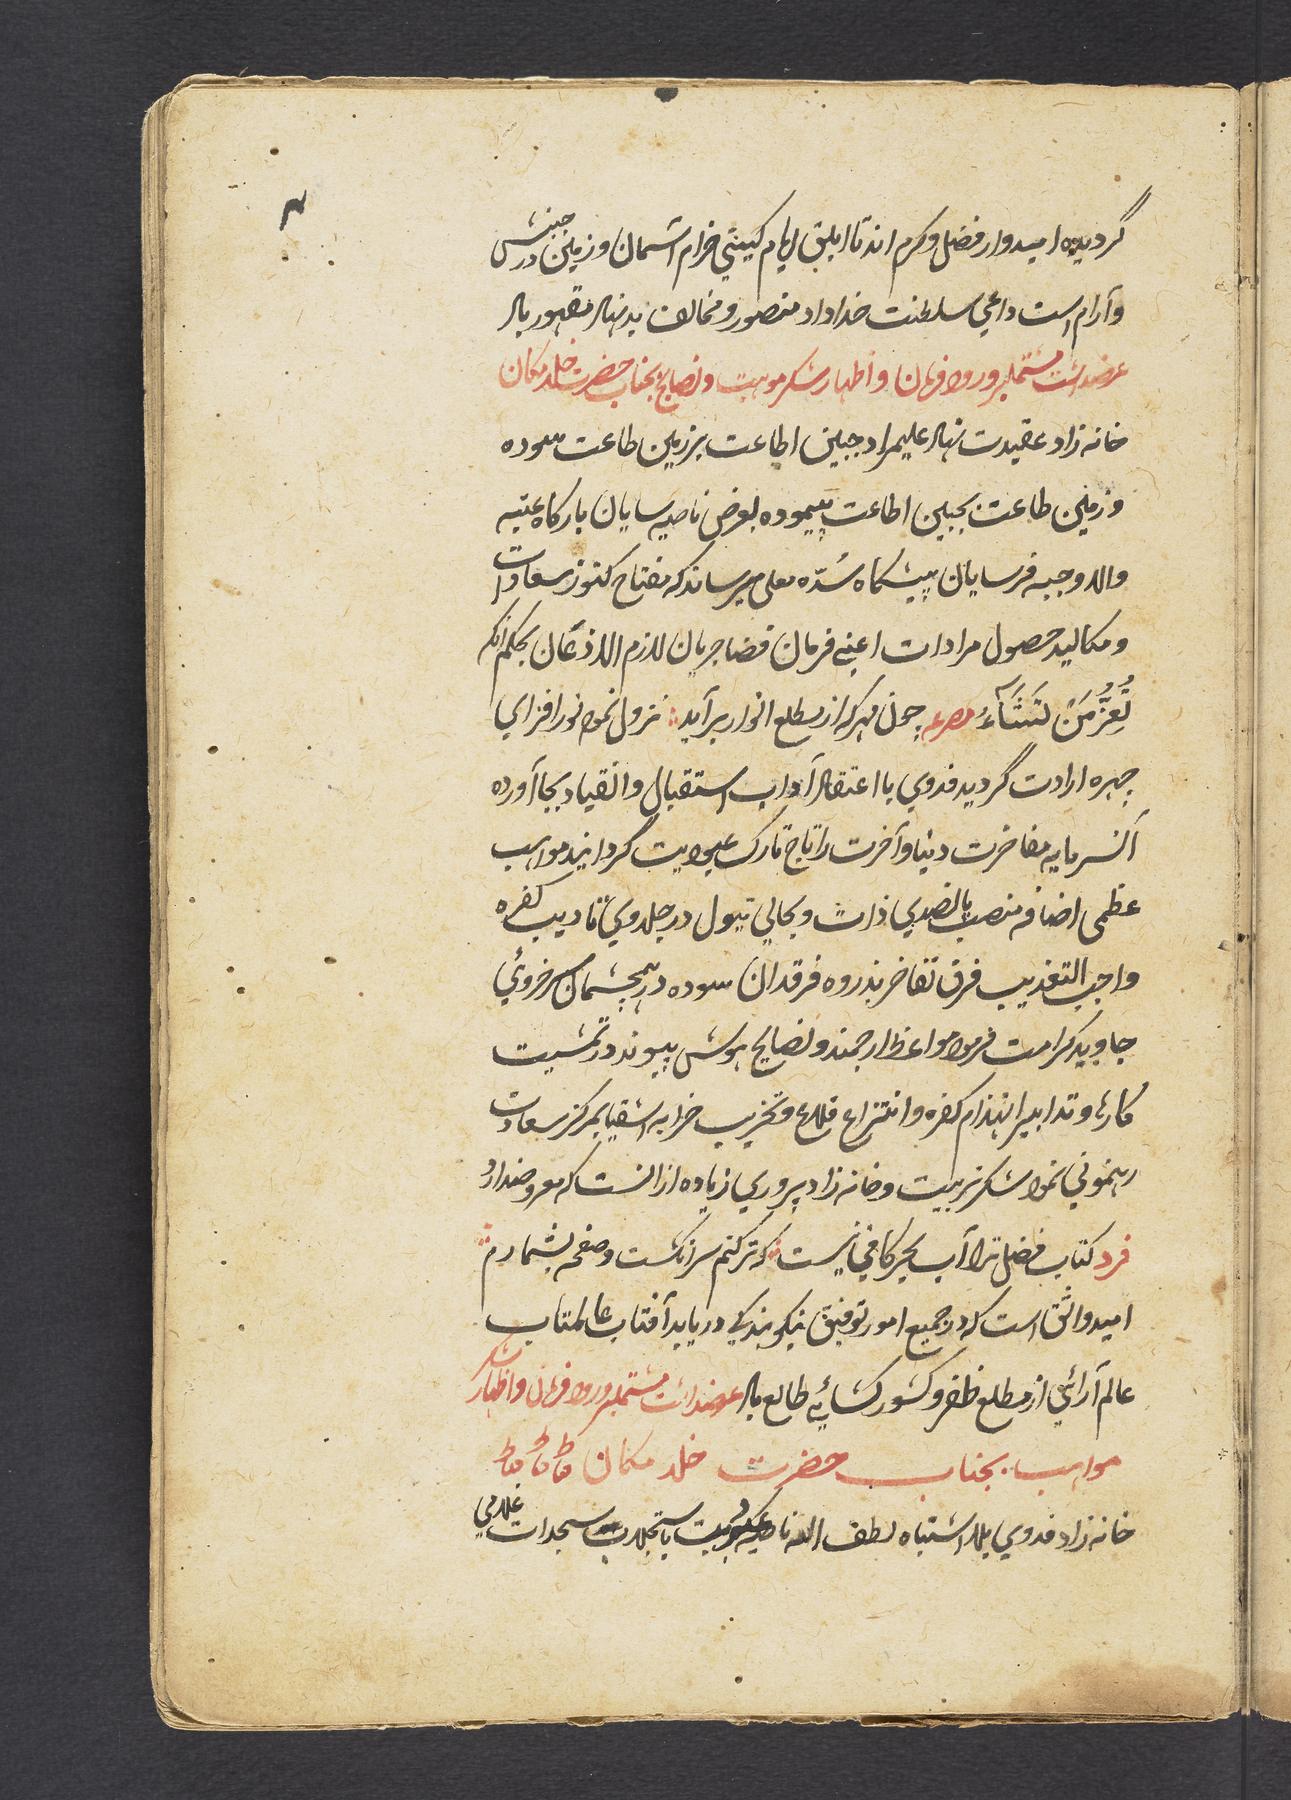 گردیده امیدوار فضل و کرم اند تا ابلق ایام کیتی خرام آسمان و زمین در جنبش
و آرام است داعی سلطنت خداداد منصور و مخالف بدنهاد مقهور باد
عرضداشت مشتملبر ورود فرمان و اظهار شکر موهبت و نصایح بجناب حضرت خلد مکان
خانه زاد عقیدت نهاد علیمراد جبین اطاعت بر زمین طاعت سوده
و زمین طاعت بجبین اطاعت پیموده بعرض ناصیه سایان بارکاه عتبه
والا و جبه فرسایان پیشکاه سُدّه معلی میرساند که مفتاح کنوز سعادات
و مکالید حصول مرادات اعنی فرمان قضا جریان لازم الاذعان بحکم انکه
تُعِزُّ مَنْ تَشَاءُ مصرعه چون مهر که از مطلع انوار برآید نزول نموده نور افزای
چهره ارادت گردید فدوی با اعتقاد آداب استقبال و انقیاد بجا آورده
آنسرمایه مفاخرت دنیا و آخرت را تاج تارک عبودیت گردانید مواهب
عظمی اضافه منصب پانصدی ذات و بحالی تیول در جلدوی تادیب کفره
واجب التعذیب فرق تفاخر بذروه فرقدان سوده در همچشمان سرخروئی
جاوید کرامت فرمود مواعظ ارجمند و نصایح هوش پیوند در تمشیت
کارها و تدابیر انهزام کفره و انتزاع قلاع و تخریب خرابه اشقیا بمرکز سعادت
رهنمونی نمود شکر تربیت و خانه زاد پروری زیاده از انست که معروضدارد
فرد کتاب فضل ترا آب بحر کافی نیست که تر کنم سرانکشت و صفحه بشمارم
امید واثق است که در جمیع امور توفیق نیکو بندکی دریابد آفتاب عالمتاب
عالم آرائی از مطلع ظفر و کشور کشائی طالع باد عرضداشت مشتملبر ورود فرمان و اظهار شکر
مواهب بجناب حضرت خلد مکان
خانه زاد فدوی بلا اشتباه لطف الله ناصیه عبودیت بسجدات غلامی